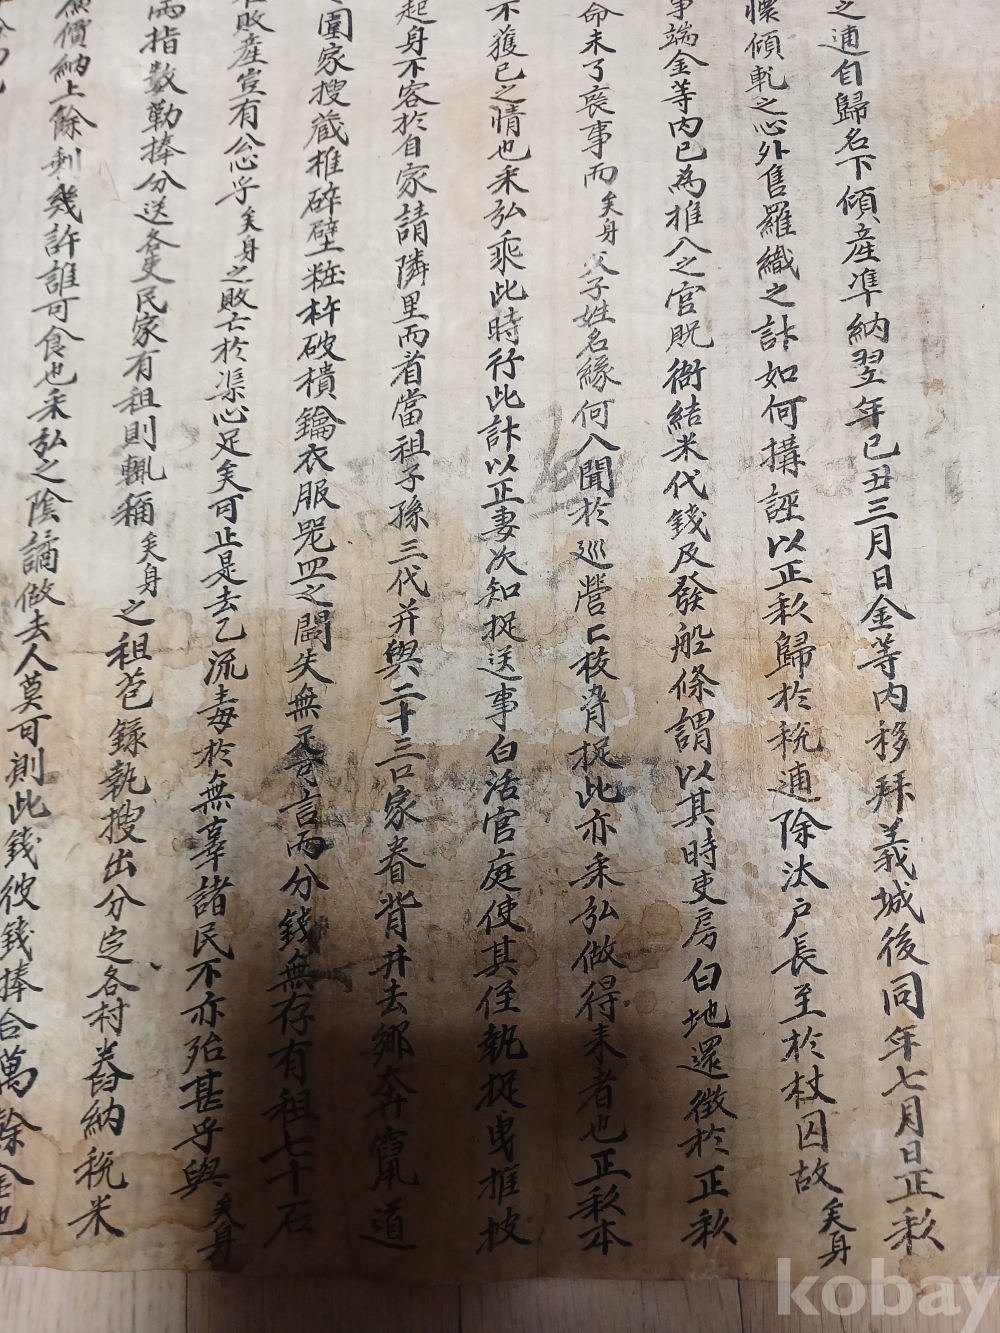 之逋自歸名下傾産準納翌年己丑三月日金等內移拜義城後同年七月日正叙
懷傾軋之心外售羅織之計如何搆誣以正叙歸於稅逋除汰戶長至於杖囚故矣身
事端金等內已為推入之官貺衙結米代錢及發船條謂以其時吏房白地還徵於正叙
命未了喪事而矣身父子姓名緣何入聞於巡營枝脅捉此亦来弘做得来者也正叙本
不獲已之情也来弘乘此時行此計以正妻次知捉送事白活官庭使其侄執捉曳推披
起身不客於自家請隣里而着當祖子孫三代并與二十三口家眷背井去鄉奔竄道
圍家搜蔵椎碎壁粧杵破樻鑰衣服器皿之閪失無足可言而分錢無存有租七十石
敗産豈有公心乎矣身之敗亡於渠心足矣可止是去乙流毒於無辜諸民不亦殆甚乎與矣身
兩指數勒捧分送各吏民家有租則輒稱矣身之租苞錄執搜出分定各村舂納稅米
價納上餘剩幾許誰可食也来弘之陰譎做去人莫可測此錢彼錢捧合萬餘金也
kobay